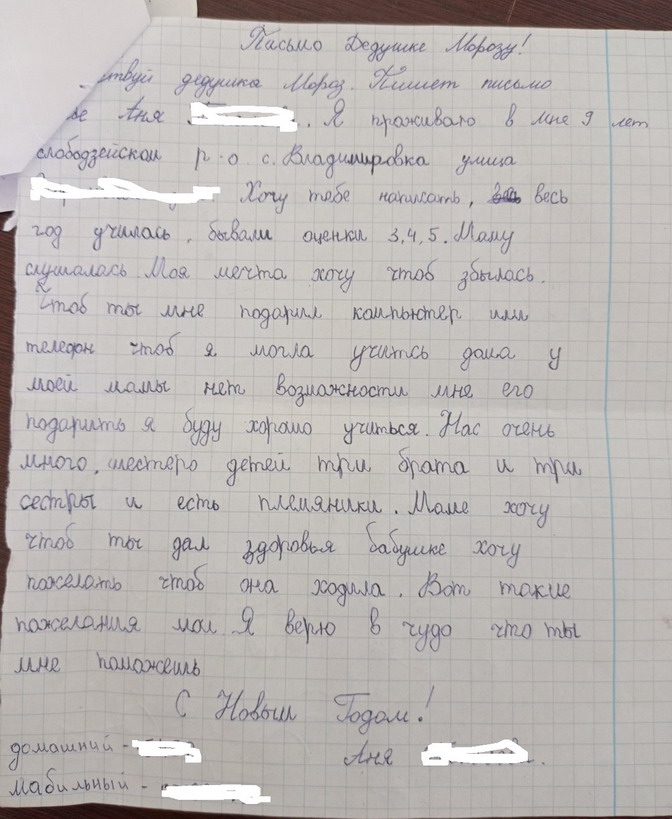 Письмо Дедушке Морозу!
ствуй дедушка Мороз. Пишет письмо
бе Аня . Я проживаю в мне 9 лет
слободзейском р-о с. Владимировка улица
Хочу тебе написать, весь
год училась, бывали оценки 3,4,5. Маму
слушалась. Моя мечта хочу чтоб збылась.
Чтоб ты мне подарил компьютер или
телефон чтоб я могла учитсь дома у
моей мамы нет возможности мне его
подарить я буду хорошо учиться. Нас очень
много, шестеро детей три брата и три
сестры и есть племяники. Маме хочу
чтоб ты дал здоровья бабушке хочу
пожелать чтоб она ходила. Вот такие
пожелания мои. Я верю в чудо что ты
мне поможешь
С Новым Годом!
домашний - Аня .
мабильный -